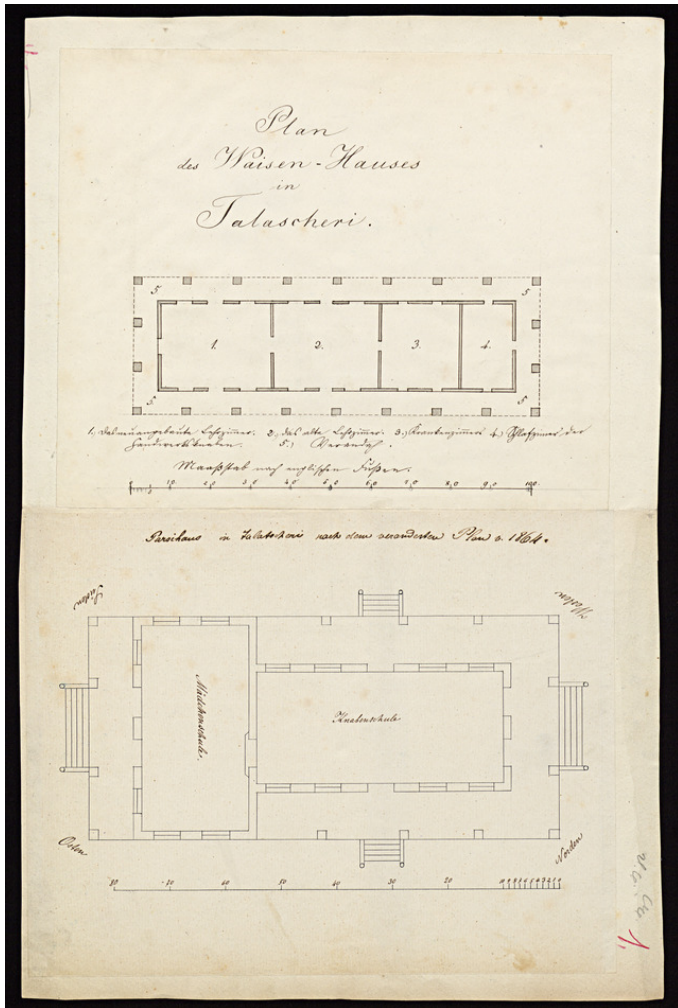 Plan
des Waisen-Hauses
in
Talascheri.
5. 5
1. 2. 3. 4.
5 5
1, Das neuangebaute Lehrzimmer. 2, das alte Lehrzimmer. 3, Krankenzimmer 4, Schlafzimmer der
Handwerksknaben. 5, Verandah.
Maaßstab nach englischen Fußen.
10 20 30 40 50 60 70 80 90 100
in Talatscheri nach dem veränderten Plan v. 1864.
Süden Westen
Mädchenschule.
Knabenschule
Osten Norden
80 70 60 50 40 30 20 10 9 8 7 6 5 4 3 2 1 0
1,